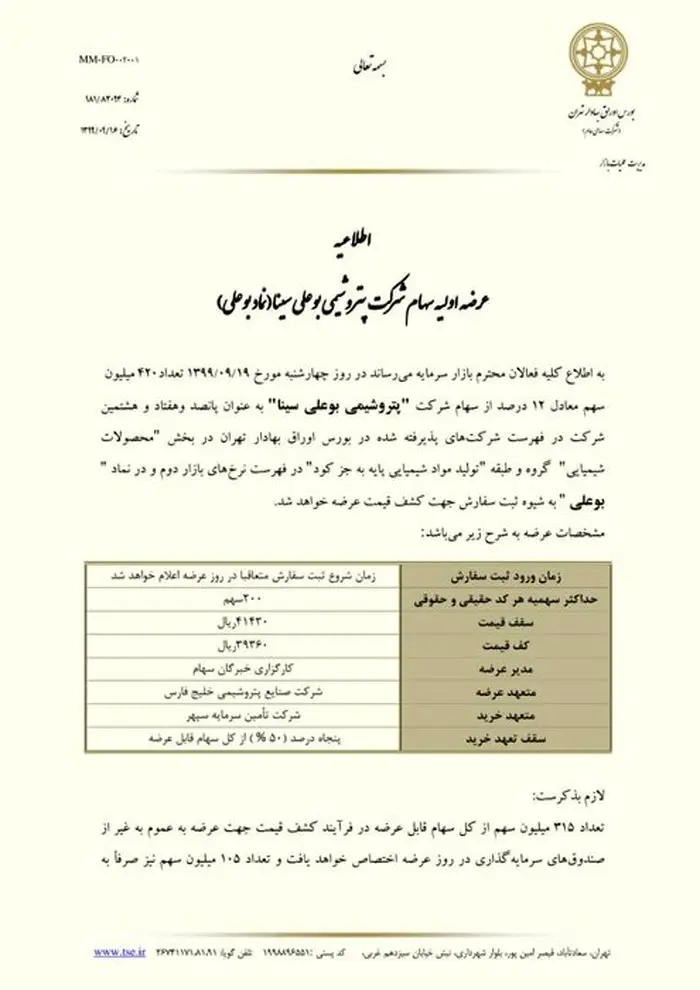 MM-FO-۰۰۲۰۰۱
بسمه تعالی
شماره: ۱۸۱/۸۲۰۹۴
تاریخ: ۱۳۹۹/۰۹/۱۶
بورس اوراق بهادار تهران
(شرکت سهامی عام)
مدیریت عملیات بازار
اطلاعیه
عرضه اولیه سهام شرکت پتروشیمی بوعلی سینا(نماد بوعلی)
به اطلاع کلیه فعالان محترم بازار سرمایه می‌رساند در روز چهارشنبه مورخ ۱۳۹۹/۰۹/۱۹ تعداد۴۲۰ میلیون
سهم معادل ۱۲ درصد از سهام شرکت "پتروشیمی بوعلی سینا" به عنوان پانصد وهفتاد و هشتمین
شرکت در فهرست شرکت‌های پذیرفته شده در بورس اوراق بهادار تهران در بخش "محصولات
شیمیایی" گروه و طبقه "تولید مواد شیمیایی پایه به جز کود" در فهرست نرخ‌های بازار دوم و در نماد "
بوعلی " به شیوه ثبت سفارش جهت کشف قیمت عرضه خواهد شد.
مشخصات عرضه به شرح زیر می‌باشد:
زمان ورود ثبت سفارش زمان شروع ثبت سفارش متعاقبا در روز عرضه اعلام خواهد شد
حداکثر سهمیه هر کد حقیقی و حقوقی ۲۰۰سهم
سقف قیمت ۴۱۴۳۰ریال
کف قیمت ۳۹۳۶۰ریال
مدیر عرضه کارگزاری خبرگان سهام
متعهد عرضه شرکت صنایع پتروشیمی خلیج فارس
متعهد خرید شرکت تأمین سرمایه سپهر
سقف تعهد خرید پنجاه درصد (۵۰ %) از کل سهام قابل عرضه
لازم بذکرست:
تعداد ۳۱۵ میلیون سهم از کل سهام قابل عرضه در فرآیند کشف قیمت جهت عرضه به عموم به غیر از
صندوق‌های سرمایه‌گذاری در روز عرضه اختصاص خواهد یافت و تعداد ۱۰۵ میلیون سهم نیز صرفاً به
تهران، سعادت‌آباد، قیصر امین پور، بلوار شهرداری، نبش خیابان سیزدهم غربی، کد پستی :۱۹۹۸۸۹۶۵۵۱ تلفن گویا: ۲۶۷۴۱۱۷۱،۸۱،۹۱ www.tse.ir